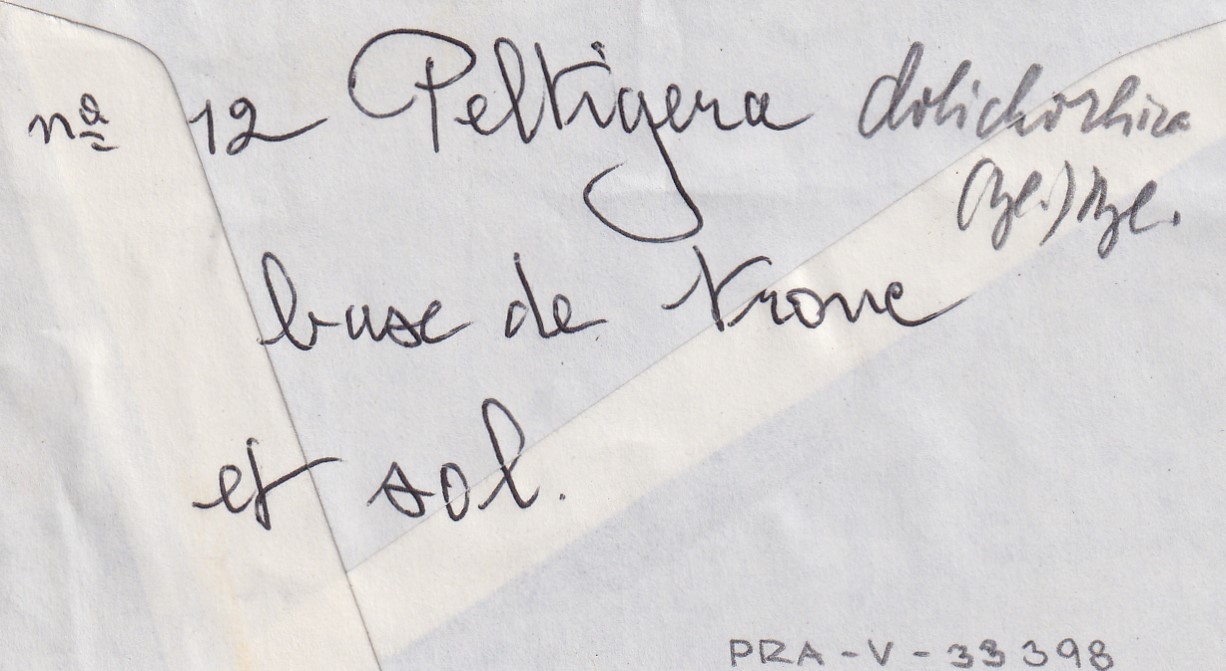 nº 12 Peltigera dolichorhiza
(Nyl.) Nyl.
base de tronc
et sol.
PRA-V-33398